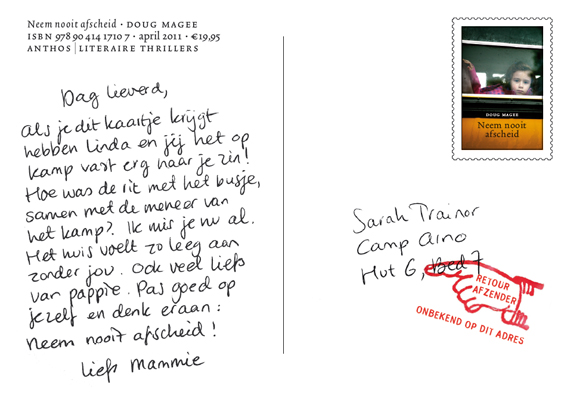 Neem nooit afscheid · DOUG MAGEE
ISBN 978 90 414 1710 7 · april 2011 · €19,95
ANTHOS | LITERAIRE THRILLERS
Dag lieverd,
als je dit kaartje krijgt
hebben Linda en jij het op
kamp vast erg naar je zin!
Hoe was de rit met het busje,
samen met de meneer van
het kamp? Ik mis je nu al.
Het huis voelt zo leeg aan
zonder jou. Ook veel liefs
van pappie. Pas goed op
jezelf en denk eraan:
neem nooit afscheid!
liefs Mammie
DOUG MAGEE
Neem nooit
afscheid
Sarah Trainor
Camp Arno
Hut 6, Bed 7
RETOUR
AFZENDER
ONBEKEND OP DIT ADRES